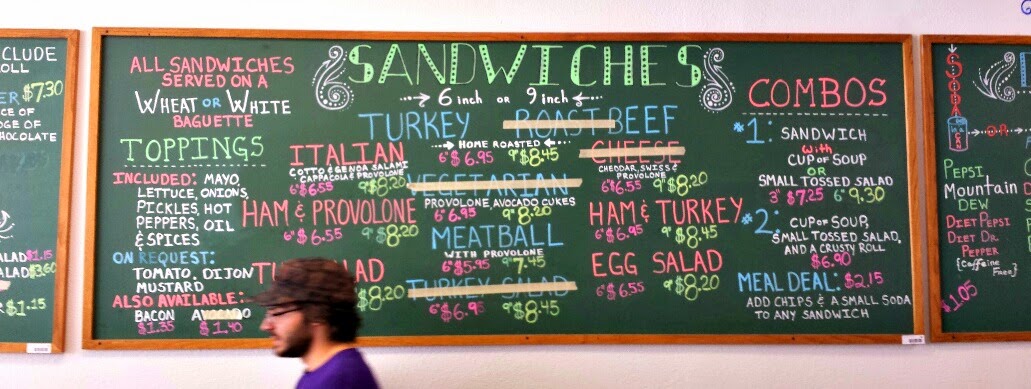 CLUDE
OLL
$7.30
CE OF
DGE OF
CHOCOLATE
ALAD $1.15
ALAD $3.60
$1.15
ALL SANDWICHES
SERVED ON A
WHEAT OR WHITE
BAGUETTE
TOPPINGS
INCLUDED: MAYO,
LETTUCE, ONIONS,
PICKLES, HOT
PEPPERS, OIL
& SPICES
ON REQUEST:
TOMATO, DIJON
MUSTARD
ALSO AVAILABLE:
BACON AVOCADO
$1.35 $1.40
SANDWICHES
6 inch OR 9 inch
TURKEY ROAST BEEF
HOME ROASTED
6" $6.95 9" $8.45
ITALIAN
COTTO & GENOA SALAMI
CAPPACOLA & PROVOLONE
6" $6.55 9" $8.20
CHEESE
CHEDDAR, SWISS &
PROVOLONE
6" $6.55 9" $8.20
VEGETARIAN
PROVOLONE, AVOCADO, CUKES
6" 6.95 9" 8.20
HAM & PROVOLONE
6" $6.55 9" $8.20
HAM & TURKEY
6" $6.95 9" $8.45
MEATBALL
WITH PROVOLONE
6" $5.95 9" 7.45
TU LAD
$8.20
EGG SALAD
6" $6.55 9" $8.20
TURKEY SALAD
6" $6.95 9" $8.45
COMBOS
#1: SANDWICH
with
CUP OF SOUP
OR
SMALL TOSSED SALAD
3" $7.25 6" 9.30
#2: CUP OF SOUP,
SMALL TOSSED SALAD,
AND A CRUSTY ROLL
$6.90
MEAL DEAL: $2.15
ADD CHIPS & A SMALL SODA
TO ANY SANDWICH
SODA
OR
PEPSI
Mountain
DEW
DIET PEPSI
DIET DR.
PEPPER
{Caffeine
Free}
$1.05